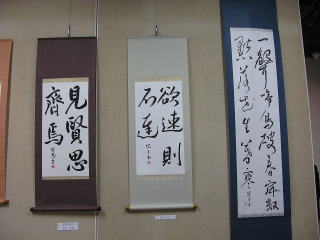 一聲啼鳥破春寂數
點落花生暮寒
欲速則
不達
見賢思
齊焉